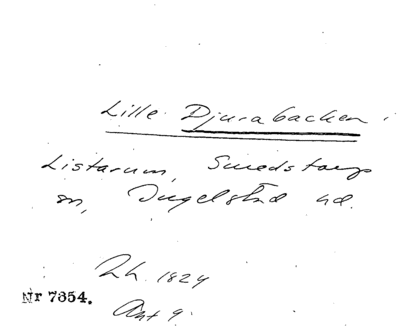 Lille Djurabacken
Listarum, Smedstorps
sn, Ingelstad hd.
Lh. 1824
Nr 7654.
Akt 9.